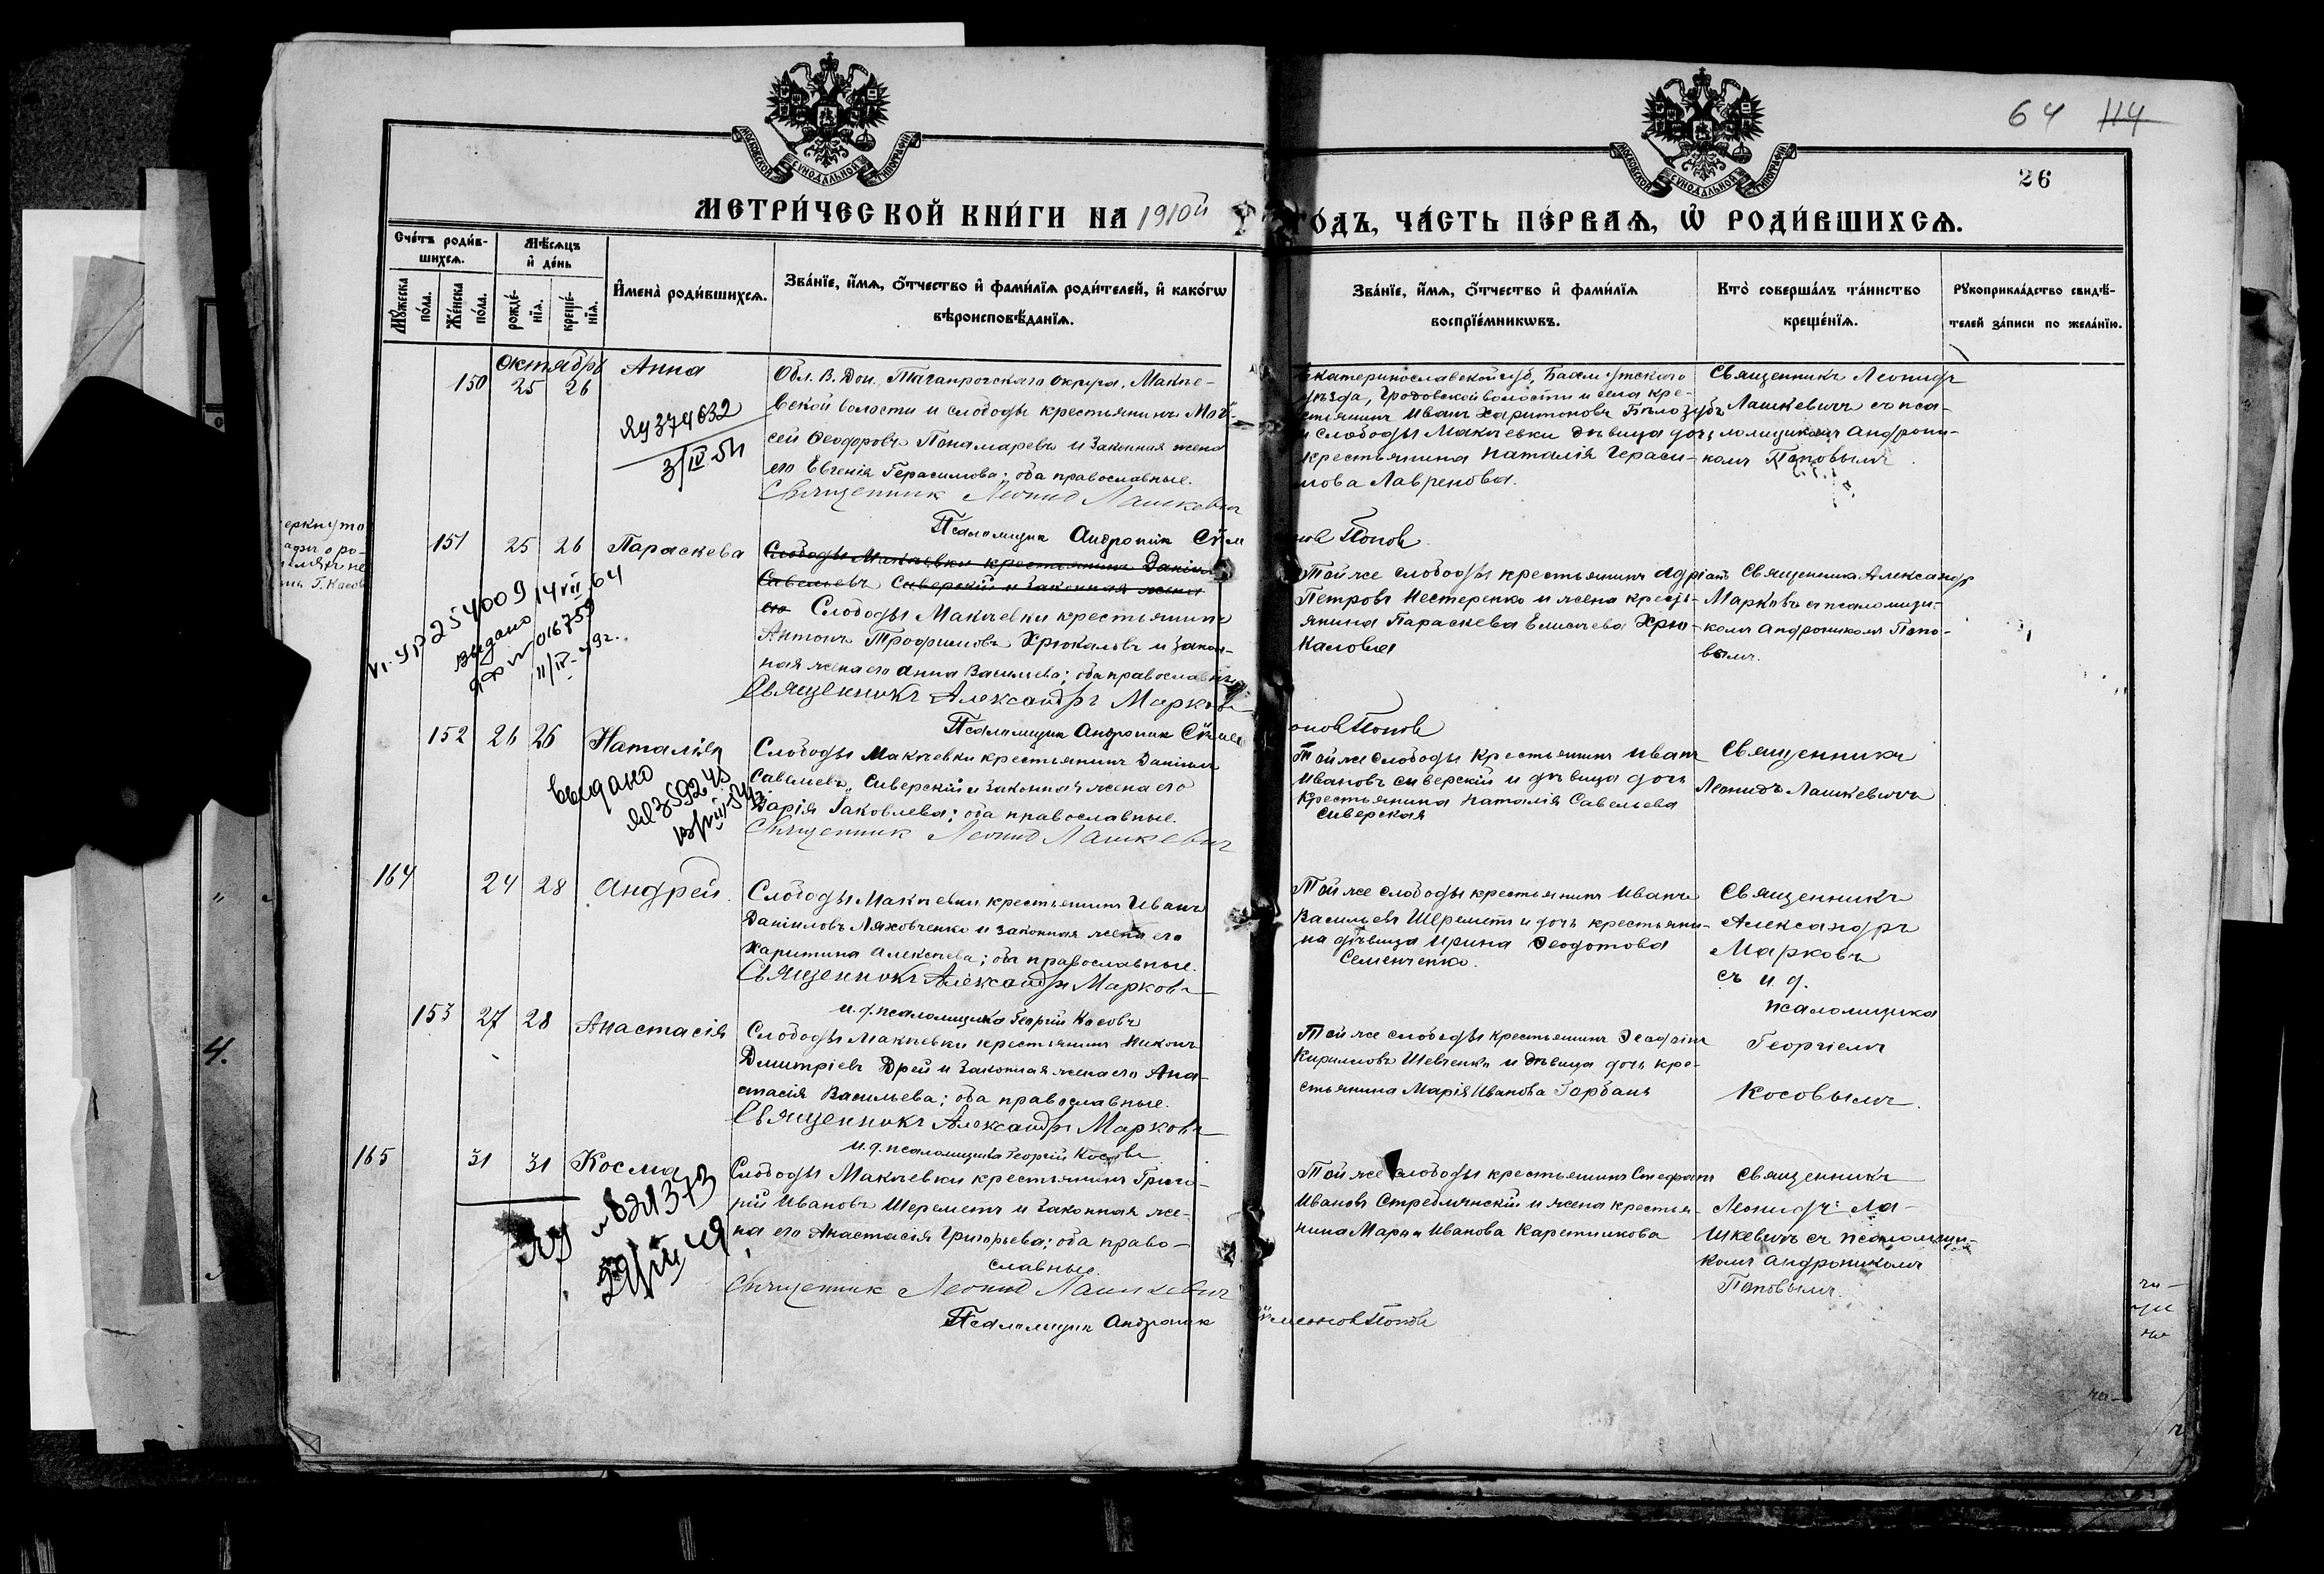 64 114
26
МОСКОВСКОЙ СѴНОДАЛЬНОЙ ТИПОГРАФІИ
МОСКОВСКОЙ СѴНОДАЛЬНОЙ ТИПОГРАФІИ
МЕТРИ́ЧЕСКОЙ КНИ́ГИ НА 1910й ГО́ДЪ, ЧА́СТЬ ПЕ́РВАѦ, Ѡ҆ РОДИ́ВШИХСѦ.
Сче́тъ роди́в-
шихсѧ.
Мꙋ́жеска по́ла.
Же́нска по́ла.
Мѣ́сѧцъ
и҆ де́нь
рожде́-
нїѧ.
креще́-
нїѧ.
И҆мена̀ роди́вшихсѧ.
Зва́нїе, и҆́мѧ, ѻ҆́тчество и҆ фами́лїѧ роди́телей, и҆ како́гѡ
вѣроисповѣ́данїѧ.
Зва́нїе, и҆́мѧ, ѻ҆́тчество и҆ фами́лїѧ
воспрїе́мникѡвъ.
Кто̀ соверша́лъ та́инство
креще́нїѧ.
Рꙋкоприкла́дство свидѣ́-
телей за́писи по жела́нїю.
октябрь
150 25 26 Анна
ЯУ 374632
3/IV 54
Обл. В. Дон. Таганрогскаго округа, Макѣе-
вской волости и слободы крестьянинъ Мой-
сей Ѳеодоровъ Понамаревъ и законная жена
его Евгенія Герасимова; оба православные.
Священник Леонид Лашкевич
Псаломщик Андроник Сѵмеонов Попов
Екатеринославской губ, Бахмутскаго
уѣзда, Гродовской волости и села кре-
стьянинъ Иванъ Харитоновъ Бѣлозубъ
и слободы Макѣевки дѣвица дочь
крестьянина Наталія Гераси-
мова Лавренова.
Священникъ Леонидъ
Лашкевичъ съ пса-
ломщикомъ Андрони-
комъ Поповымъ.
еркнуто
о ро-
не
Г. Косов
151 25 26 Параскева
УР 254009 14 VII 64
выдано
№ 016759
11/IV-49г.
Слободы Макѣевки крестьянинъ Даніилъ
Савельевъ Сиверскій и законная жена
его Слободы Макѣевки крестьянинъ
Антонъ Трофимовъ Хрюкаловъ и закон-
ная жена его Анна Васильева; оба православные.
Священникъ Александръ Марковъ
Псаломщик Андроник Сѵмеонов Попов
Той же слободы крестьянинъ Адріанъ
Петровъ Нестеренко и жена кресть-
янина Параскева Елисеева Хрю-
калова
Священника Александр
Марковъ съ псаломщи-
комъ Андроникомъ Попо-
вымъ.
152 26 26 Наталія
выдано
359245
Слободы Макѣевки крестьянинъ Даніилъ
Савельевъ Сиверскій и законная жена его
Дарія Іаковлева; оба православные.
Священник Леонид Лашкевич
Той же слободы крестьянинъ Иванъ
Ивановъ Сиверскій и дѣвица дочь
крестьянина Наталія Савельева
Сиверская
Священникъ
Леонидъ Лашкевичъ
164 24 28 Андрей.
Слободы Макѣевки крестьянинъ Иванъ
Даніиловъ Ляховченко и законная жена его
Харитина Алексѣева; оба православные.
Священникъ Александръ Марковъ
и. д. псаломщика Георгій Косовъ
Той же слободы крестьянинъ Иванъ
Васильевъ Шереметъ и дочь крестьяни-
на дѣвица Ирина Ѳеодотова
Семенченко.
Священникъ
Александръ
Марковъ
съ и. д.
псаломщика
Георгіемъ
Косовымъ.
153 27 28 Анастасія
Слободы Макѣевки крестьянинъ Никонъ
Дмитріевъ Дрей и законная жена его Ана-
стасія Васильева; оба православные.
Священникъ Александръ Марковъ
и. д. псаломщика Георгій Косовъ
Той же слободы крестьянинъ
Кирилловъ Шевченко и дѣвица дочь кре-
стьянина Марія Иванова Горбань
165 31 31 Косма
ЯУ № 821373
29/III 49
Слободы Макѣевки крестьянинъ Григо-
рій Ивановъ Шереметъ и законная же-
на его Анастасія Григорьева; оба право-
славные.
Священник Леонид Лашкевич
Псаломщик Андроник Сѵмеонов Попов
Той же слободы крестьянинъ Стефанъ
Ивановъ Стреблянскій и жена крестья-
нина Марія Иванова Каретникова
Священникъ
Леонидъ Ла-
шкевичъ съ псаломщи-
комъ Андроникомъ
Поповымъ.
4.